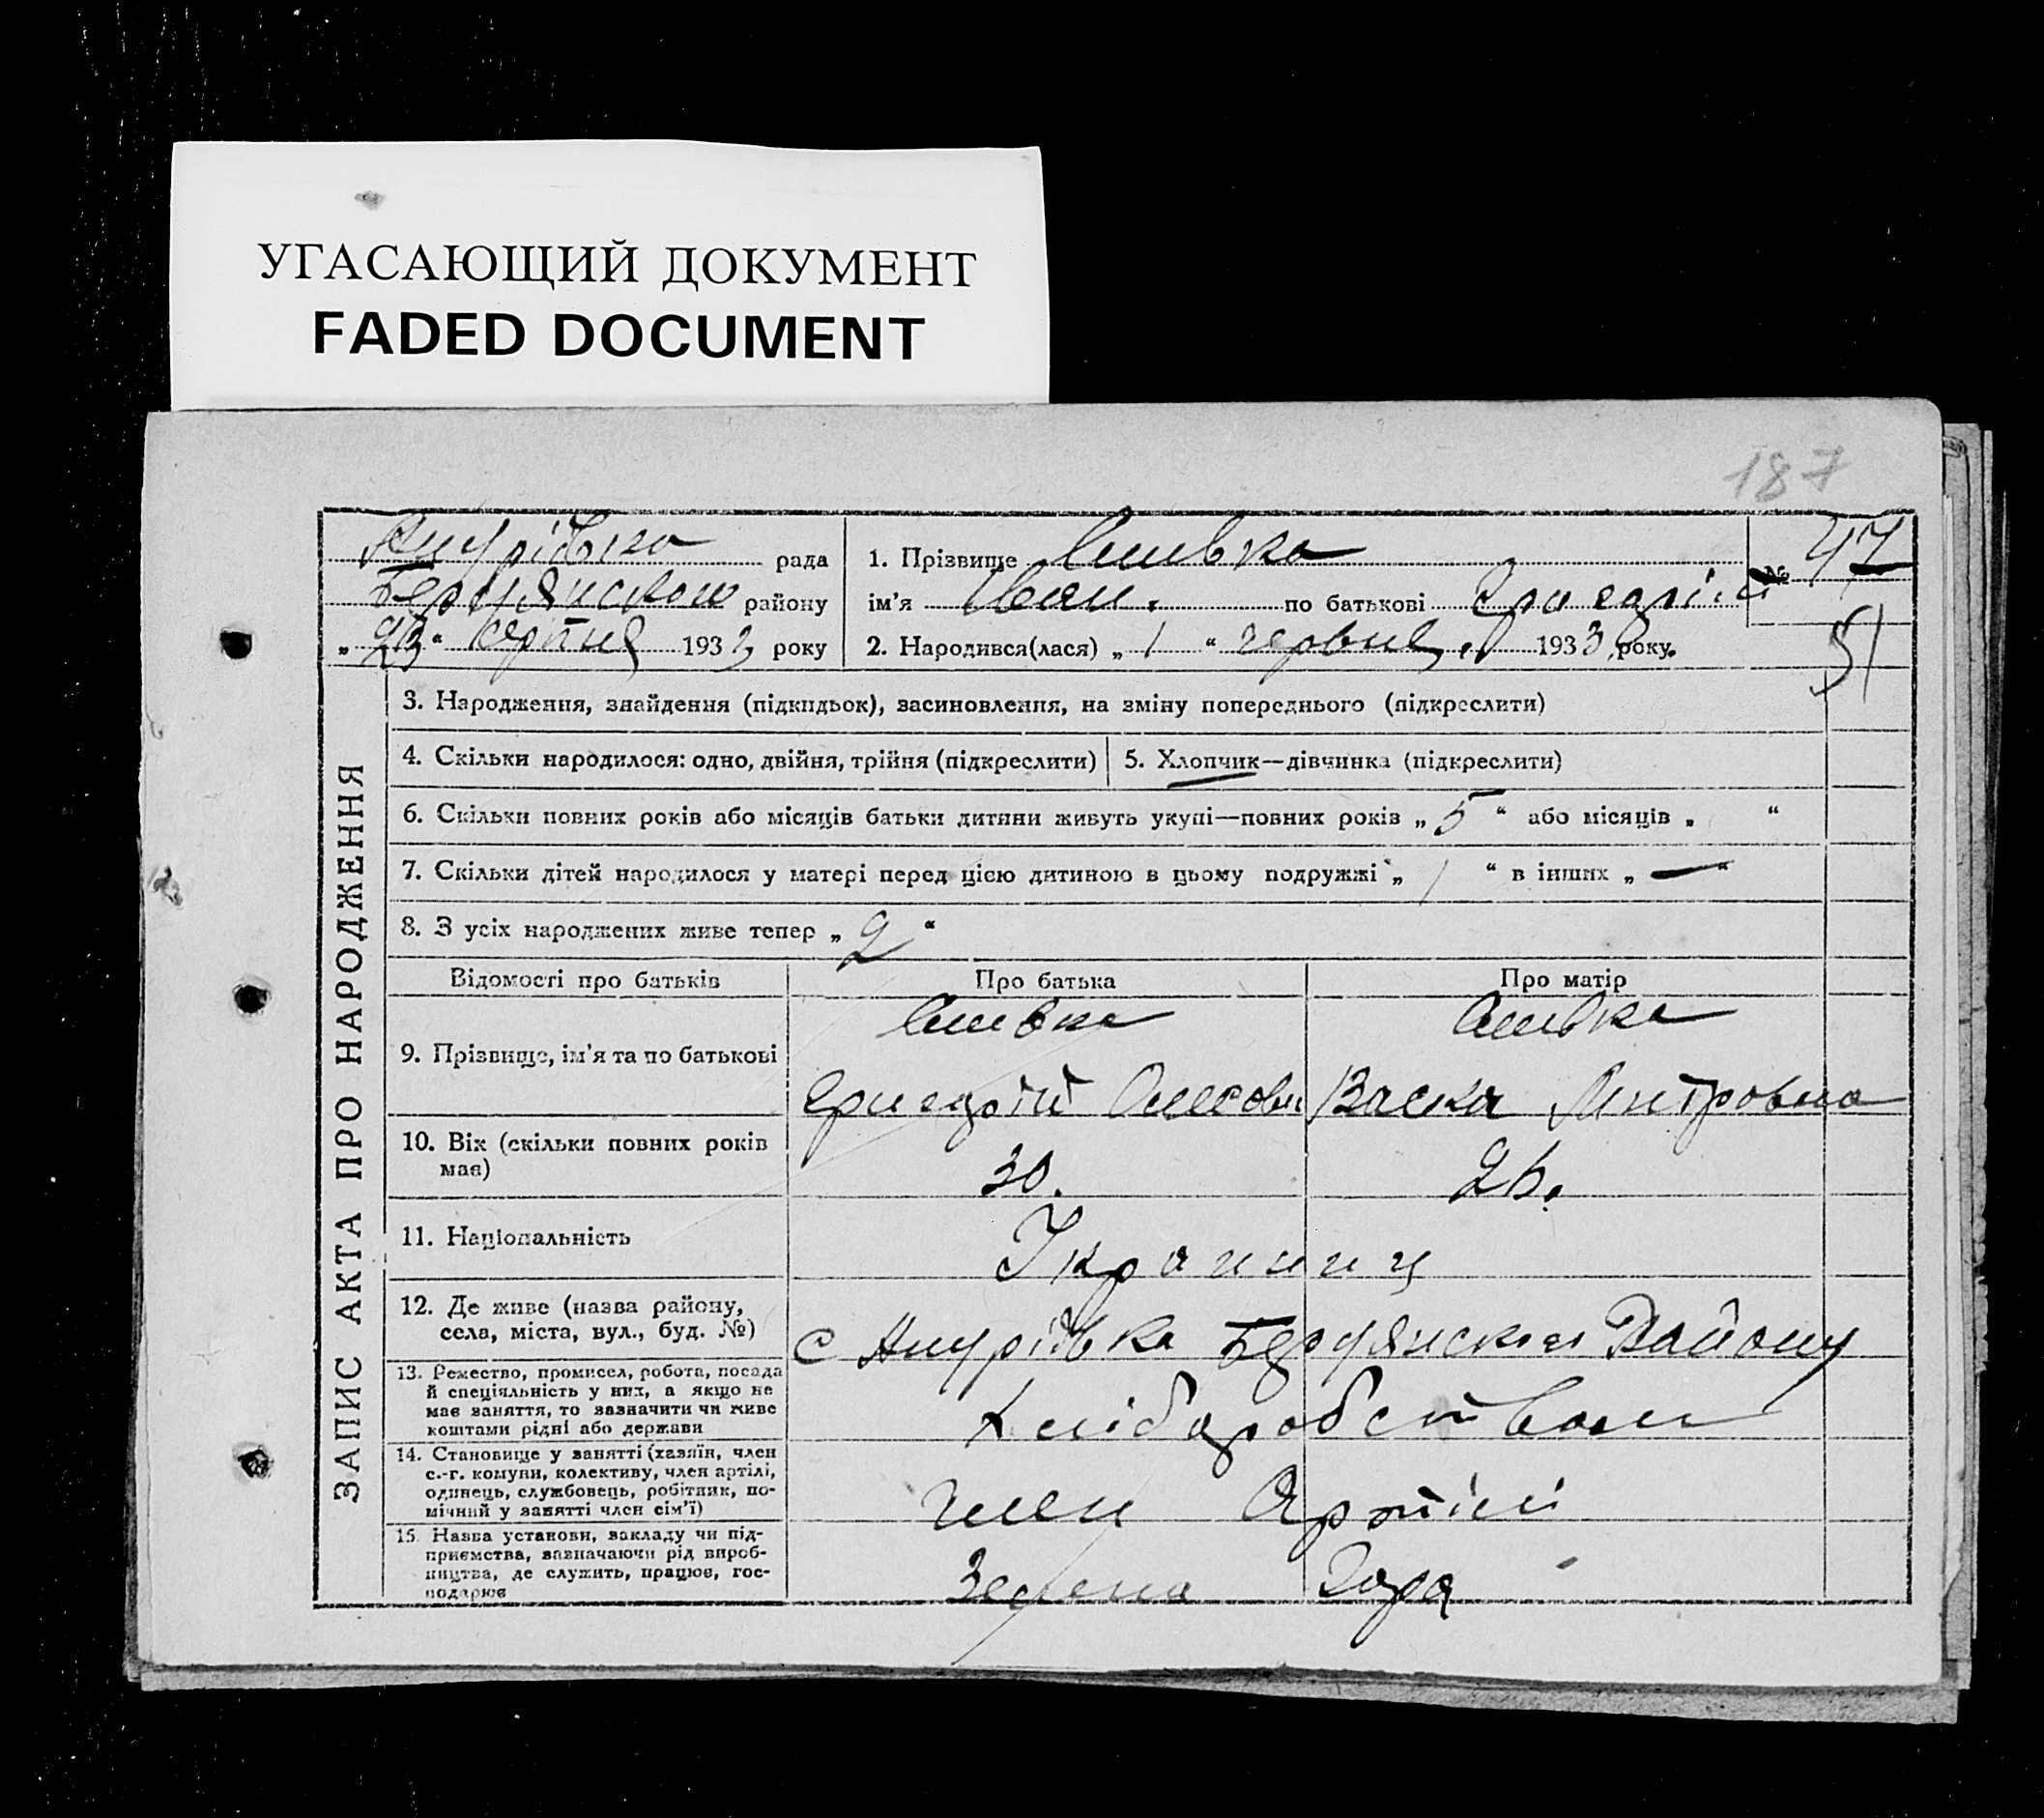 УГАСАЮЩИЙ ДОКУМЕНТ
FADED DOCUMENT
187
рада
району
„ 23 “ серпня 1933 року
1. Прізвище Сливка
ім’я Іван. по батькові
2. Народився(лася) „ 1 “ червня 1933 року.
№ 47
51
ЗАПИС АКТА ПРО НАРОДЖЕННЯ
3. Народження, знайдення (підкидьок), засиновлення, на зміну попереднього (підкреслити)
4. Скільки народилося: одно, двійня, трійня (підкреслити)
5. Хлопчик—дівчинка (підкреслити)
6. Скільки повних років або місяців батьки дитини живуть укупі—повних років „ 5 “ або місяців „ “
7. Скільки дітей народилося у матері перед цією дитиною в цьому подружжі „ 1 “ в інших „ — “
8. З усіх народжених живе тепер „ 2 “
Відомості про батьків
Про батька
Про матір
9. Прізвище, ім’я та по батькові
Сливка
Сливка
Митровна
10. Вік (скільки повних років
має)
30.
26.
11. Національність
Украинец
12. Де живе (назва району,
села, міста, вул., буд. №)
с Району
13. Ремество, промисел, робота, посада
й спеціяльність у них, а якщо не
має заняття, то зазначити чи живе
коштами рідні або держави
Хліборобством
14. Становище у занятті (хазяїн, член
с.-г. комуни, колективу, член артілі,
одинець, службовець, робітник, по-
мічний у занятті член сім’ї)
член Артілі
15. Назва установи, закладу чи під-
приємства, зазначаючи рід вироб-
ництва, де служить, працює, гос-
подарює